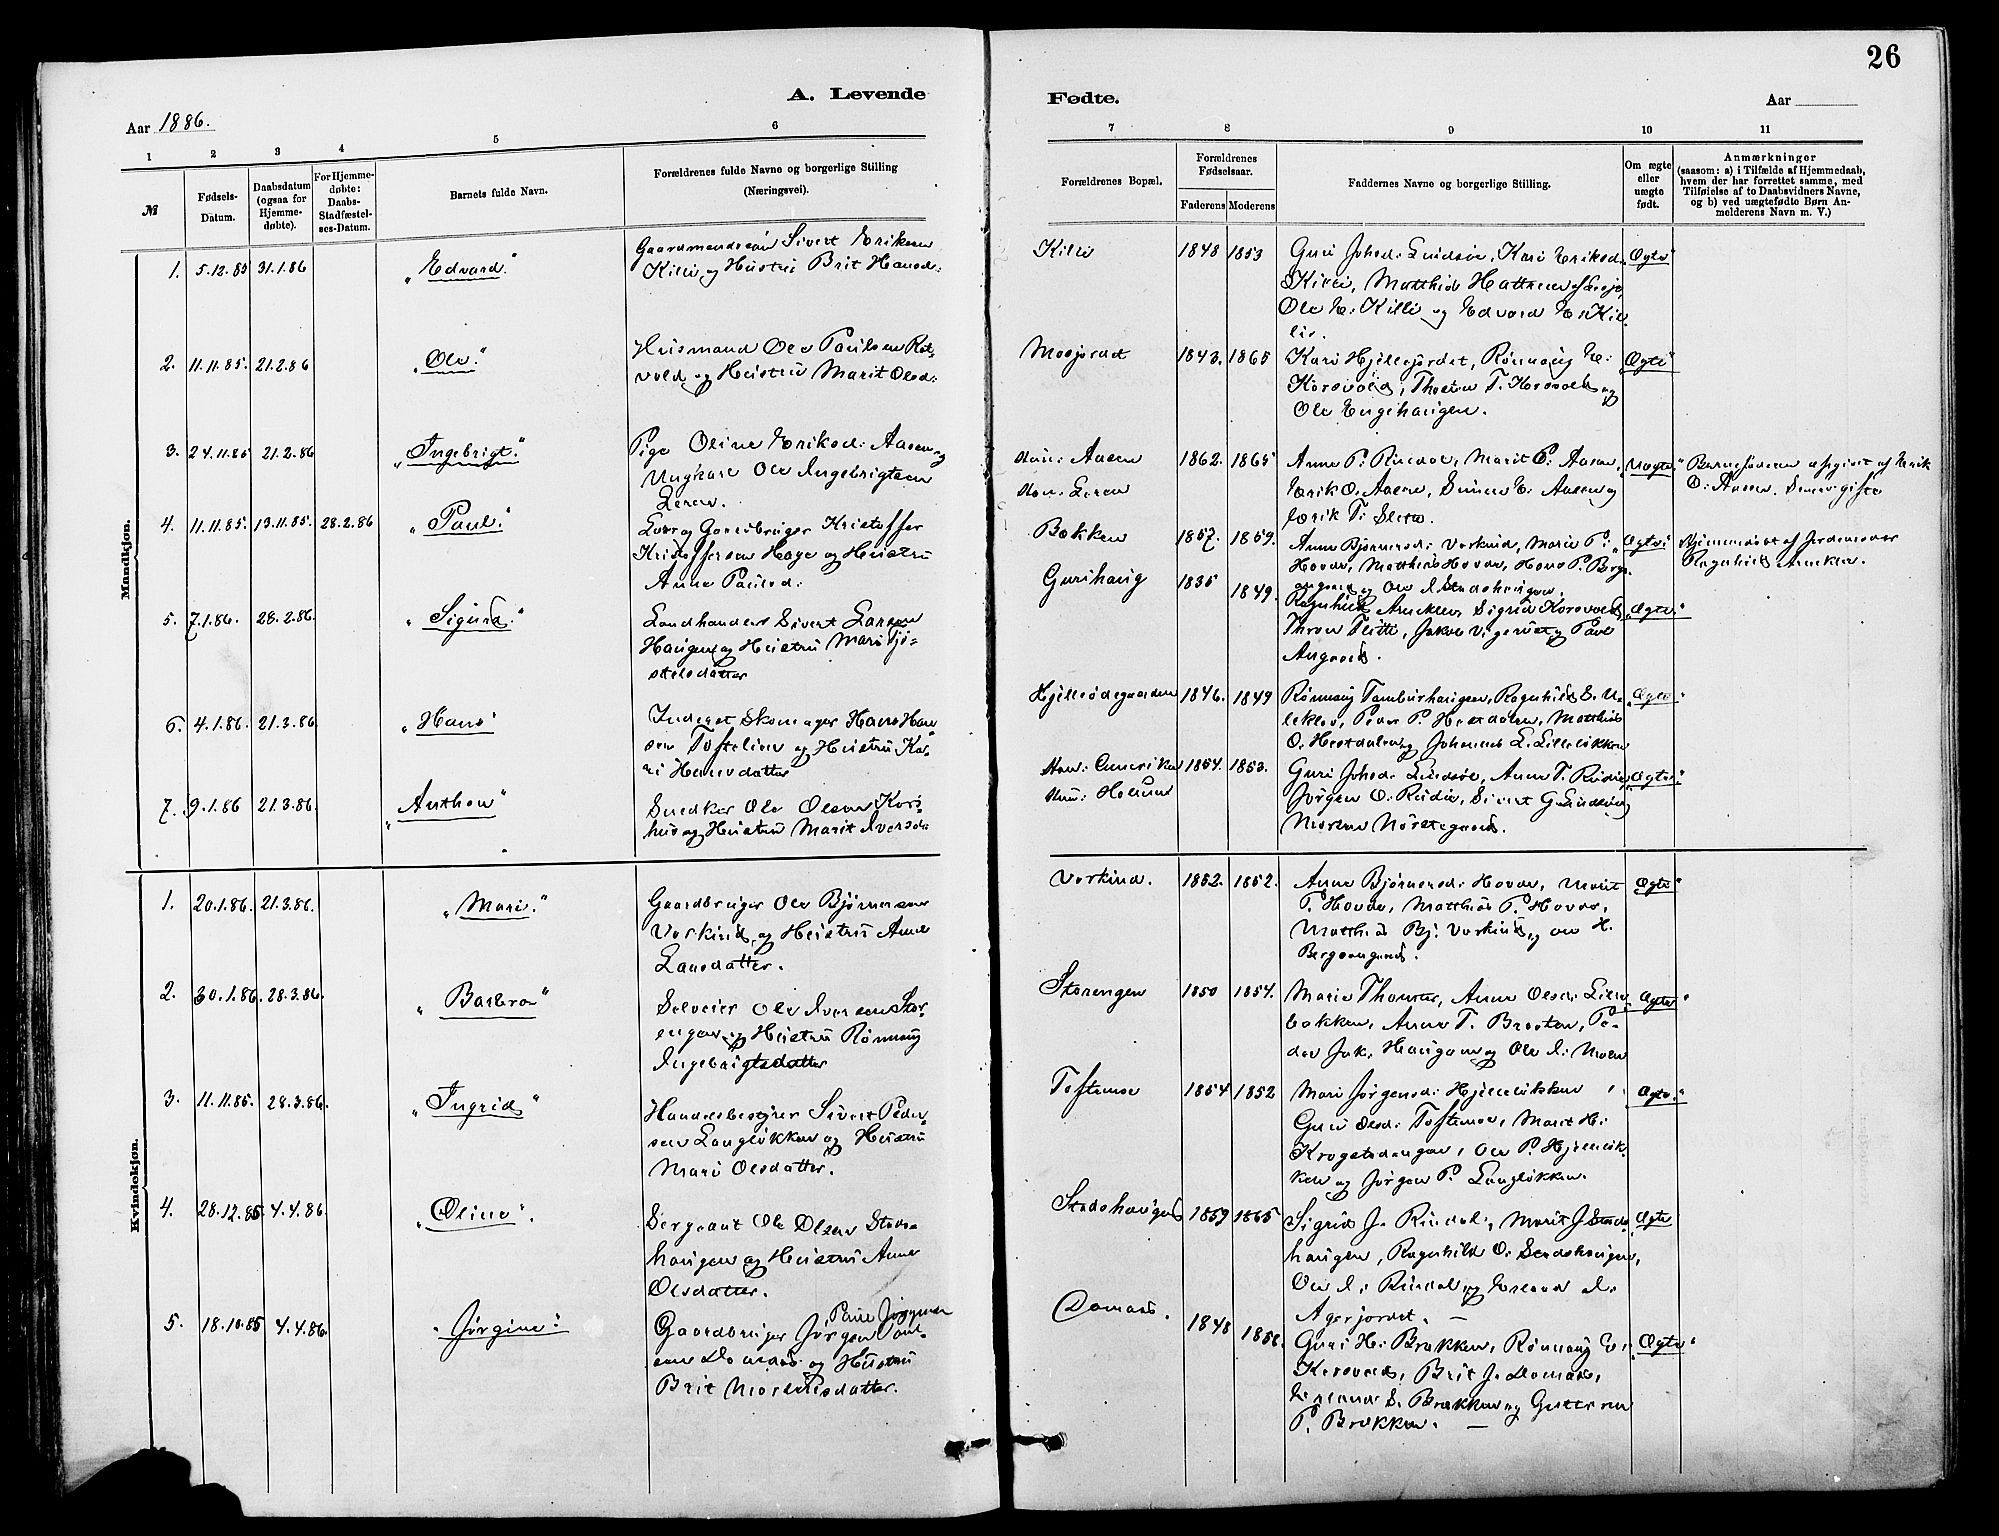 26
A. Levende
Fødte.
Aar 1886.
Aar
1 2 3 4 5 6
7 8 9 10 11
№
Fødsels-
Datum.
Daabsdatum
(ogsaa for
Hjemme-
døbte).
For Hjemme-
døbte:
Daabs-
Stadfæstel-
ses-Datum.
Barnets fulde Navn.
Forældrenes fulde Navne og borgerlige Stilling
(Næringsvei).
Forældrenes Bopæl.
Forældrenes
Fødselsaar.
Faderens Moderens
Faddernes Navne og borgerlige Stilling.
Om ægte
eller
uægte
født.
Anmærkninger
(saasom: a) i Tilfælde af Hjemmedaab,
hvem der har forrettet samme, med
Tilføielse af to Daabsvidners Navne,
og b) ved uægtefødte Børn An-
melderens Navn m. V.)
Mandkjøn.
1. 5.12.85 31.1.86 "Edvard."
Gaardmandssøn Sivert Eriksen
Killi og Hustru Brit Hansd:
Killi 1848 1853
Guri Johsd: Lindsøe, Kari Eriksd.
Killi, Matthis
Ole E. Killi og Edvard E. Kil-
li.
"Ægte"
2. 11.11.85. 21.2.86 "Ole."
Husmand Ole Paulsen Rat-
vold og Hustru Marit Olsd:
Mosjordet 1843. 1865
Kari Hjellejordet, Rønnaug E.
Korsvold, Thosten T. Korsvold og
Ole Engehaugen.
"Ægte"
3. 24.11.85 21.2.86 "Ingebrigt."
Pige Oline Eriksd: Aasen og
Ungkarl Ole Ingebrigtsen
Leren.
Hun: Aasen
Han: Leren
1862. 1865
Anne P. Rindal, Marit O. Aasen,
Erik O. Aasen, Simen E. Aasen og
Erik T. Sletten.
"Uægte."
Barnefaderen opgivet af Erik
O. Aasen. Smeds gifte
4. 11.11.85. 13.11.85. 28.2.86 "Paul."
Leer og Gaardbruger Kristoffer
Kristoffersen Hage og Hustru
Anne Paulsd:
Bakken 1857. 1859.
Anne Bjørnersd: Vorkind, Marie P.
Hovde, Matthis Hovde, Hans P. Berg-
og Ole I. Stadshaugen.
"Ægte."
Hjemmedøbt af Jordemoder
Ragnhild
5. 7.1.86. 28.2.86. "Sigurd."
Landhandler Sivert Larsen
Haugen og Hustru Mari Tjø-
stelsdatter
Gurihaug 1835 1849.
Ragnhild Sigrid Korsvold,
Thron Flitti, Jakob Vigerust og Paul
Angard.
"Ægte."
6. 4.1.86. 21.3.86. "Hans"
Inderst Skomager Hans Han-
sen Toftelien og Hustru Ka-
ri Hansdatter
Hjellesødegaarden 1846. 1849
Rønnaug Tamburhaugen, Ragnhild S. U-
leklev, Peder P. Hestdalen, Matthis
O. Hestdalen og Johannes L. Lilleløkken
"Ægte"
7. 9.1.86 21.3.86. "Anthon"
Snedker Ole Olsen Kors-
hus og Hustru Marit Iversd:
Han: Amerika
Hun: Holum
1854. 1853.
Guri Johsd: Lindsøe, Anne T. Rudie,
Jørgen O. Rudie, Sivert G. Lindsøe,
Morten Nørstegaard.
"Ægte"
Kvindekjøn.
1. 20.1.86. 21.3.86. "Mari."
Gaardbruger Ole Bjørnersen
Vorkind, og Hustru Anne
Larsdatter.
Vorkind. 1852. 1852.
Anne Bjørnersd: Hovde, Marit
P. Hovde, Matthis P. Hovde,
Matthis Bj. Vorkind og Ole H.
"Ægte"
2. 30.1.86. 28.3.86. "Barbro"
Selveier Ole Iversen Stor-
engen og Hustru Rønnaug
Ingebrigtsdatter
Storengen 1850 1854.
Marie Thomter, Anne Olsd: Lille-
bakken, Anne T. Braaten, Pe-
der Jak. Haugen og Ole I. Moen
"Ægte"
3. 11.11.85. 28.3.86. "Ingrid"
Handelsbestyrer Sivert Peder-
sen Langløkken og Hustru
Mari Olsdatter.
Toftemoe 1854 1852
Mari Jørgensd: Hjelleløkken,
Guri Olsd: Toftemoe, Marit H.
Krogstadengen, Ole P. Hjelleløk-
ken og Jørgen P. Langløkken.
"Ægte."
4. 28.12.85. 4.4.86. "Oline".
Sergeant Ole Olsen Stads-
haugen og Hustru Anne
Olsdatter.
Stadshaugen 1859 1865
Sigrid J. Rindal, Marit J. Stads-
haugen, Ragnhild O. Stadshaugen,
Ole I. Rindal og Erland I.
Agerjordet. —
"Ægte"
5. 18.10.85 4.4.86. "Jørgine."
Gaardbruger Jørgen Paul-
sen Domaas og Hustru
Brit Mortensdatter.
Domaas. 1848 1858.
Guri H. Brækken, Rønnaug E.
Korsvold, Brit J. Domaas,
Erland S. Brækken og Guttorm
P. Brækken. —
"Ægte"